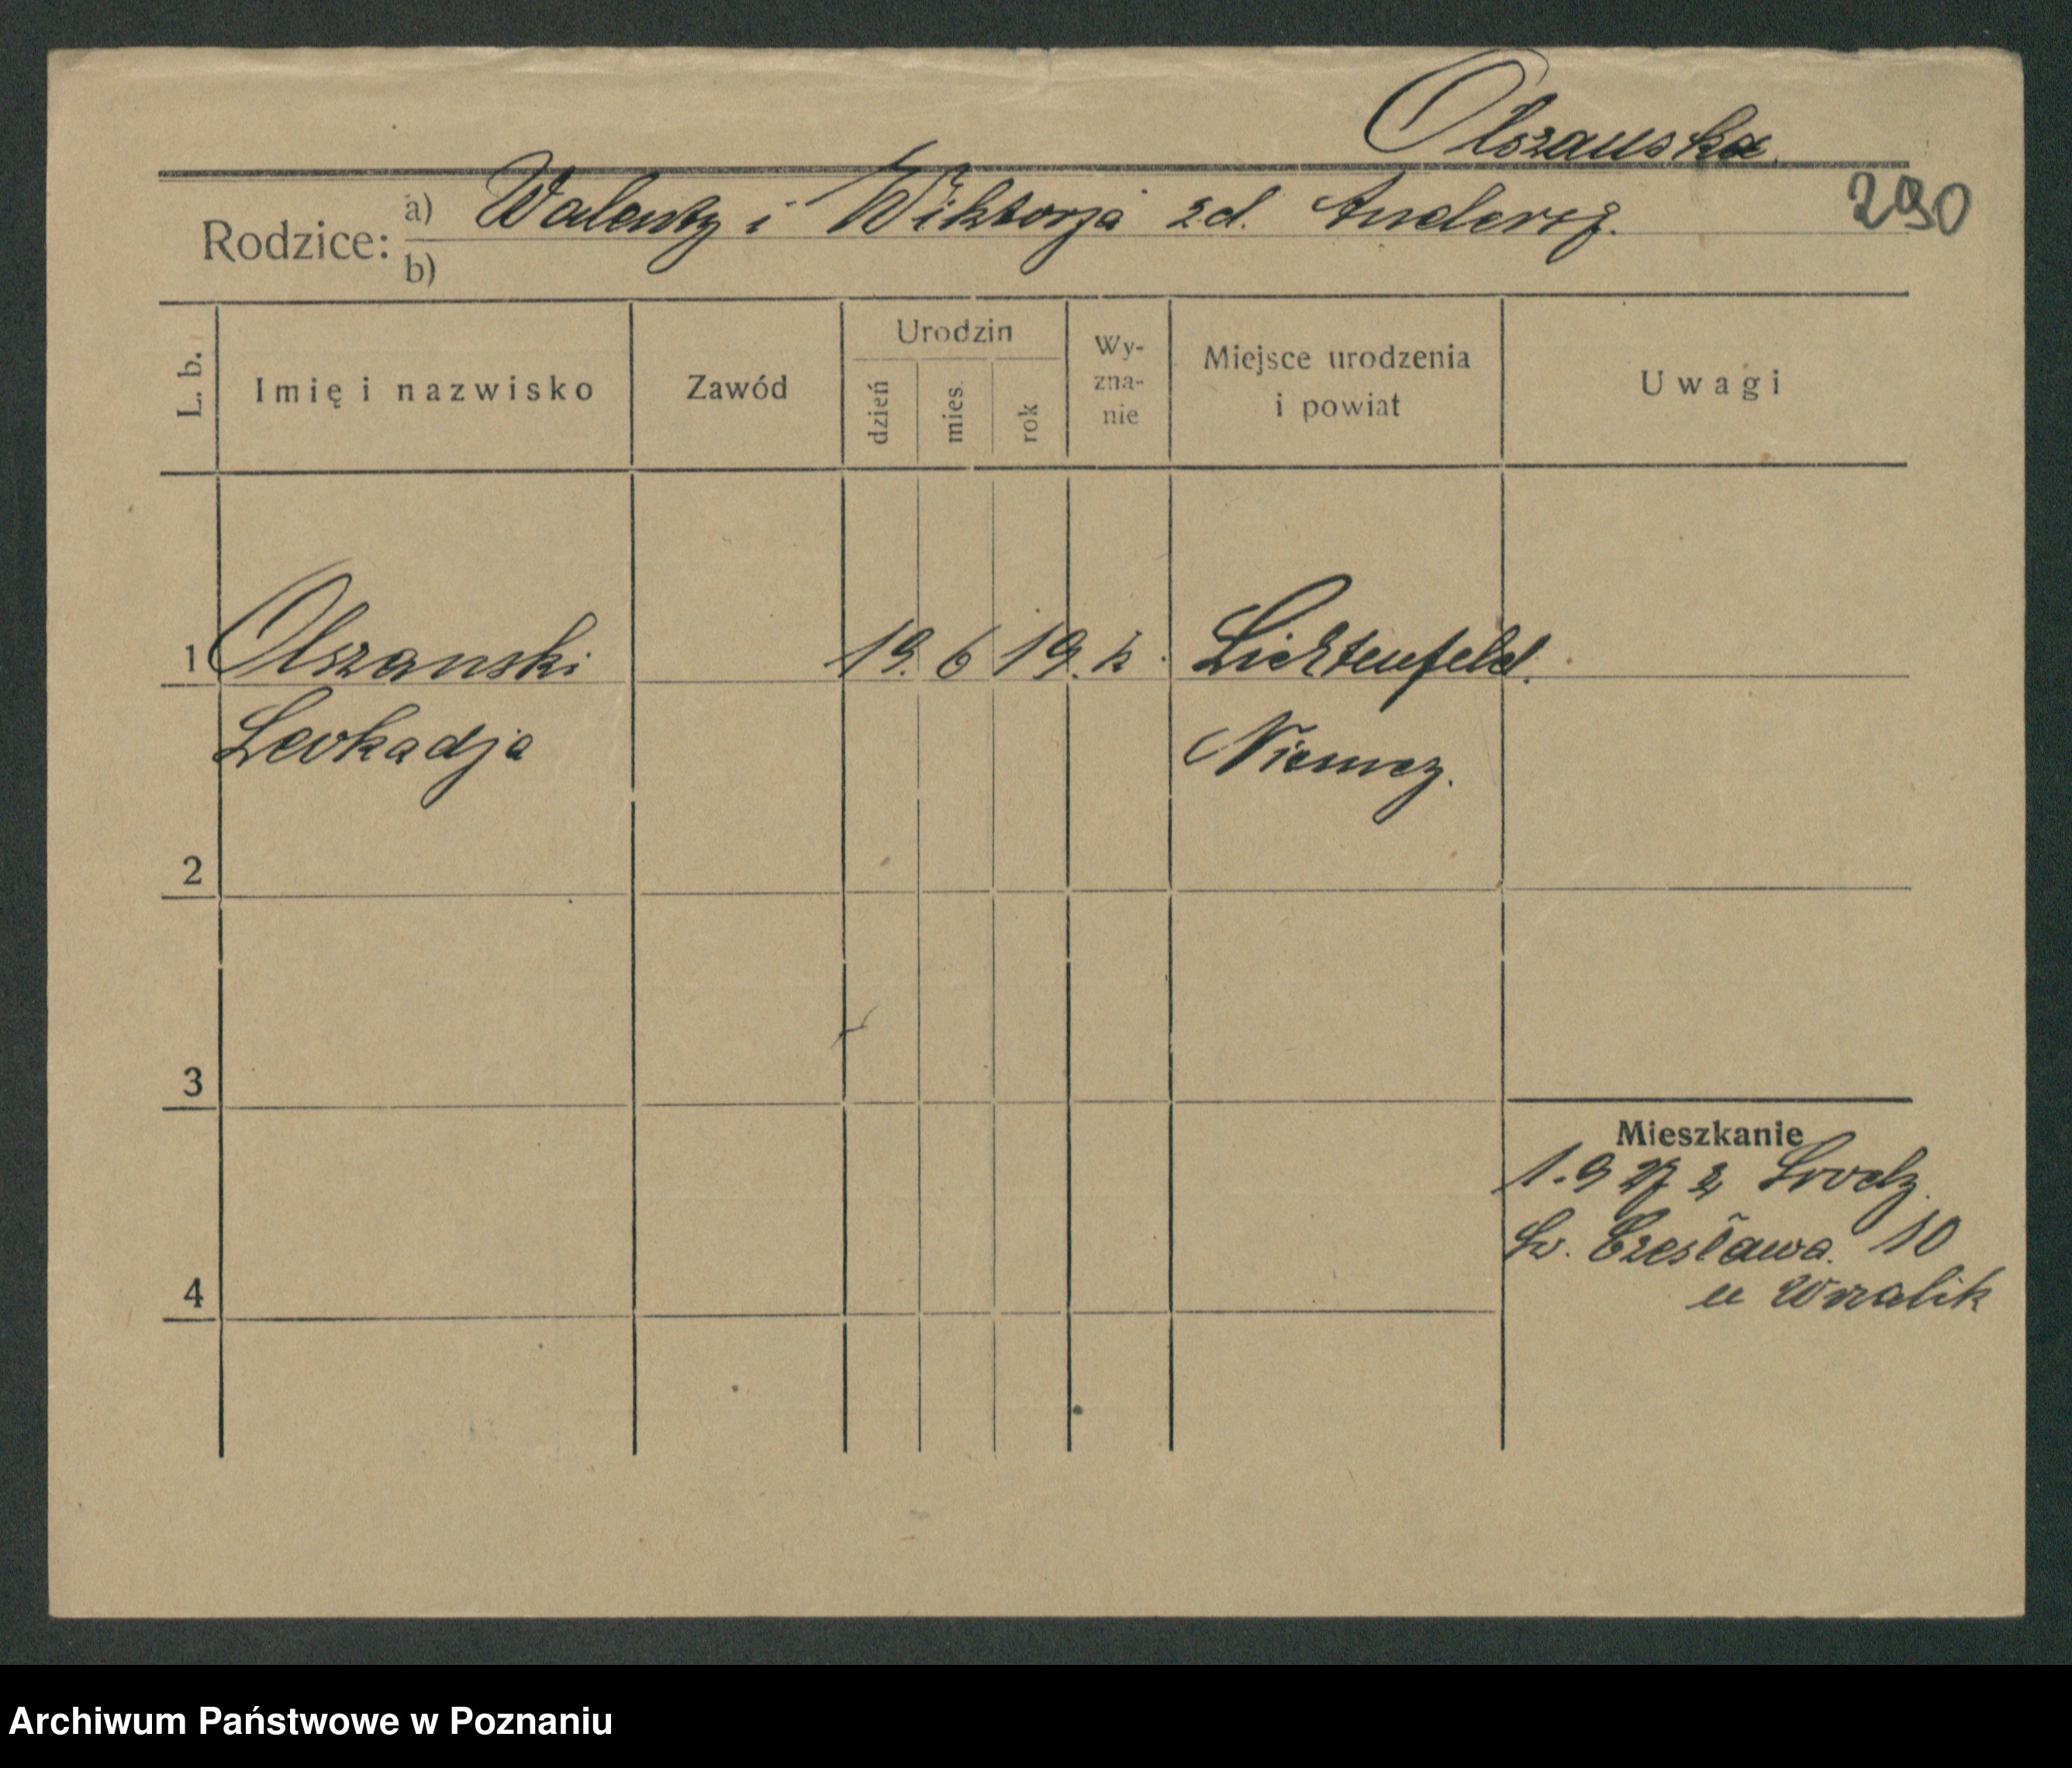 Olszanska.
290
Rodzice: a) Walenty i Wiktorja zd. Andersz.
b)
L. b. Imię i nazwisko Zawód Urodzin dzień mies. rok Wy-zna-nie Miejsce urodzenia i powiat Uwagi
1 Olszanski 19. 6 19. k. Lichtenfeld.
Leokadja Niemcy.
2
3
Mieszkanie
1.9 27 z
Św. Czesława. 10
4 u
Archiwum Państwowe w Poznaniu